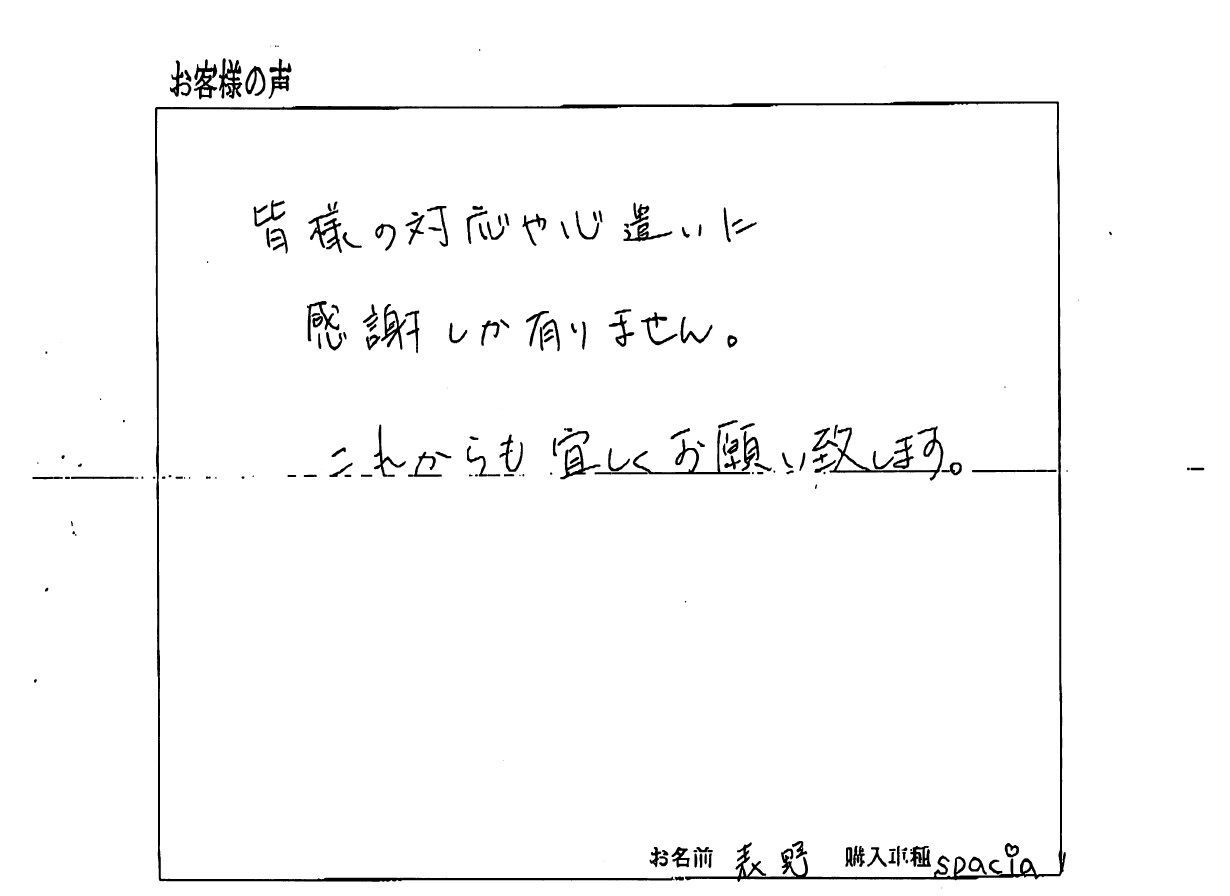 お客様の声
皆様の対応や心遣いに
感謝しか有りません。
これからも宜しくお願い致します。
お名前 表野 購入車種 spacia